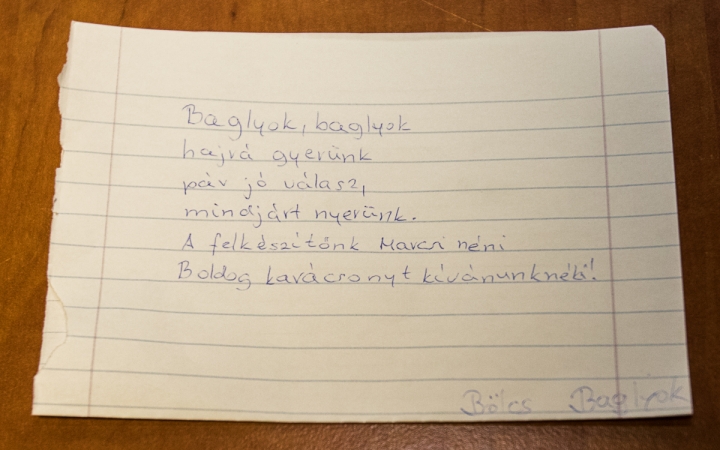 Baglyok, baglyok
hajrá gyerünk
pár jó válasz,
mindjárt nyerünk.
A felkészítőnk Marcsi néni
Boldog karácsonyt kívánunknéki!
Bölcs Baglyok